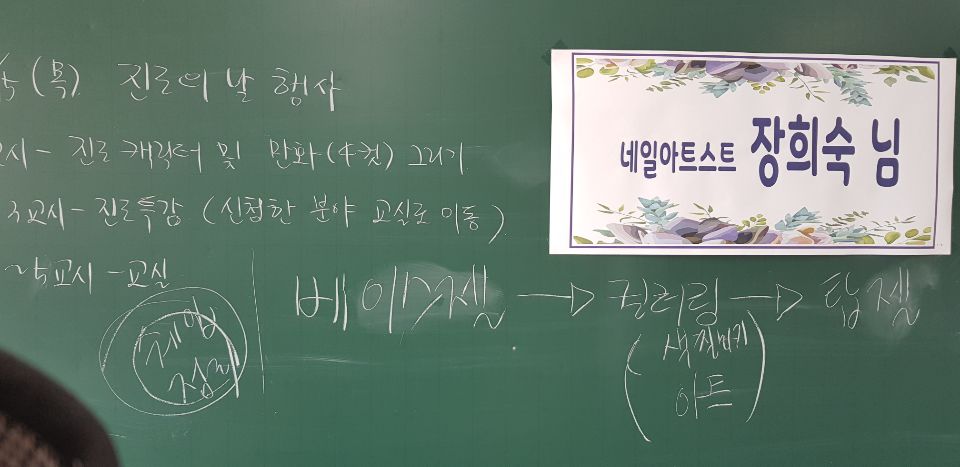 (목) 진로의 날 행사
교시 - 진로 캐릭터 및 만화(4컷) 그리기
교시 - 진로특강 (신청한 분야 교실로 이동)
교시 - 교실
네일아트스트 장희숙 님
베이스젤 → 컬러링 → 탑젤
(색칠하기
아트)